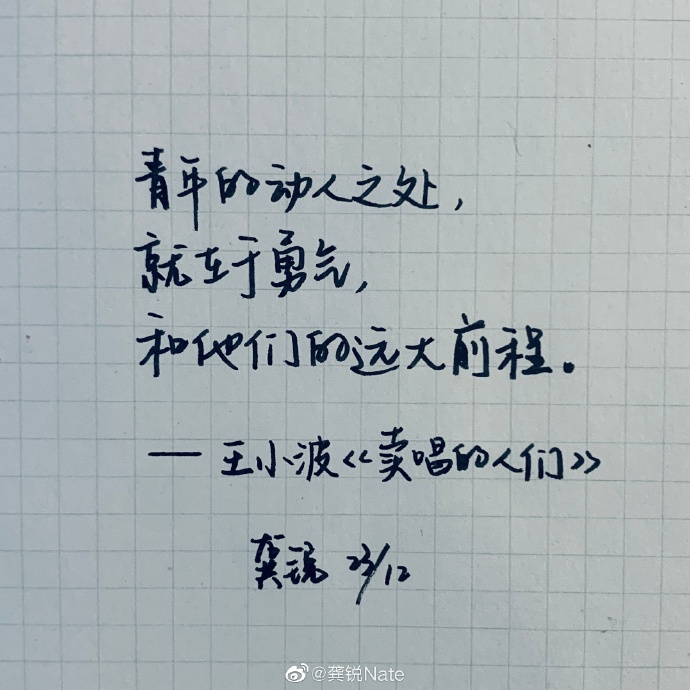 青年的动人之处,
就在于勇气,
和他们的远大前程。
— 王小波《卖唱的人们》
龚锐 23/12
@龚锐Nate